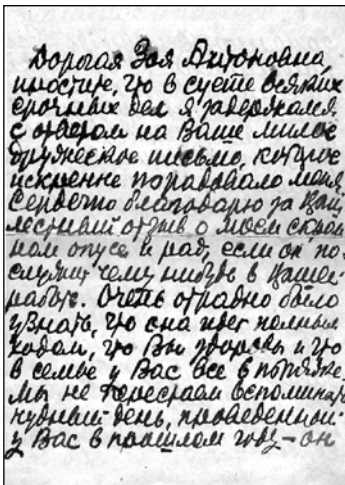 Дорогая Зоя Антоновна,
простите, что в суете всяких
срочных дел я задержался
с ответом на Ваше милое
дружеское письмо, которое
искренне порадовало меня.
Сердечно благодарю за Ваш
лестный отзыв о моем скром
ном опусе и рад, если он по
служит чему нибудь в Вашей
работе. Очень отрадно было
узнать, что она идет полным
ходом, что Вы здоровы и что
в семье у Вас все в порядке.
Мы не перестаем вспоминать
чудный день, проведенный
у Вас в прошлом году – он